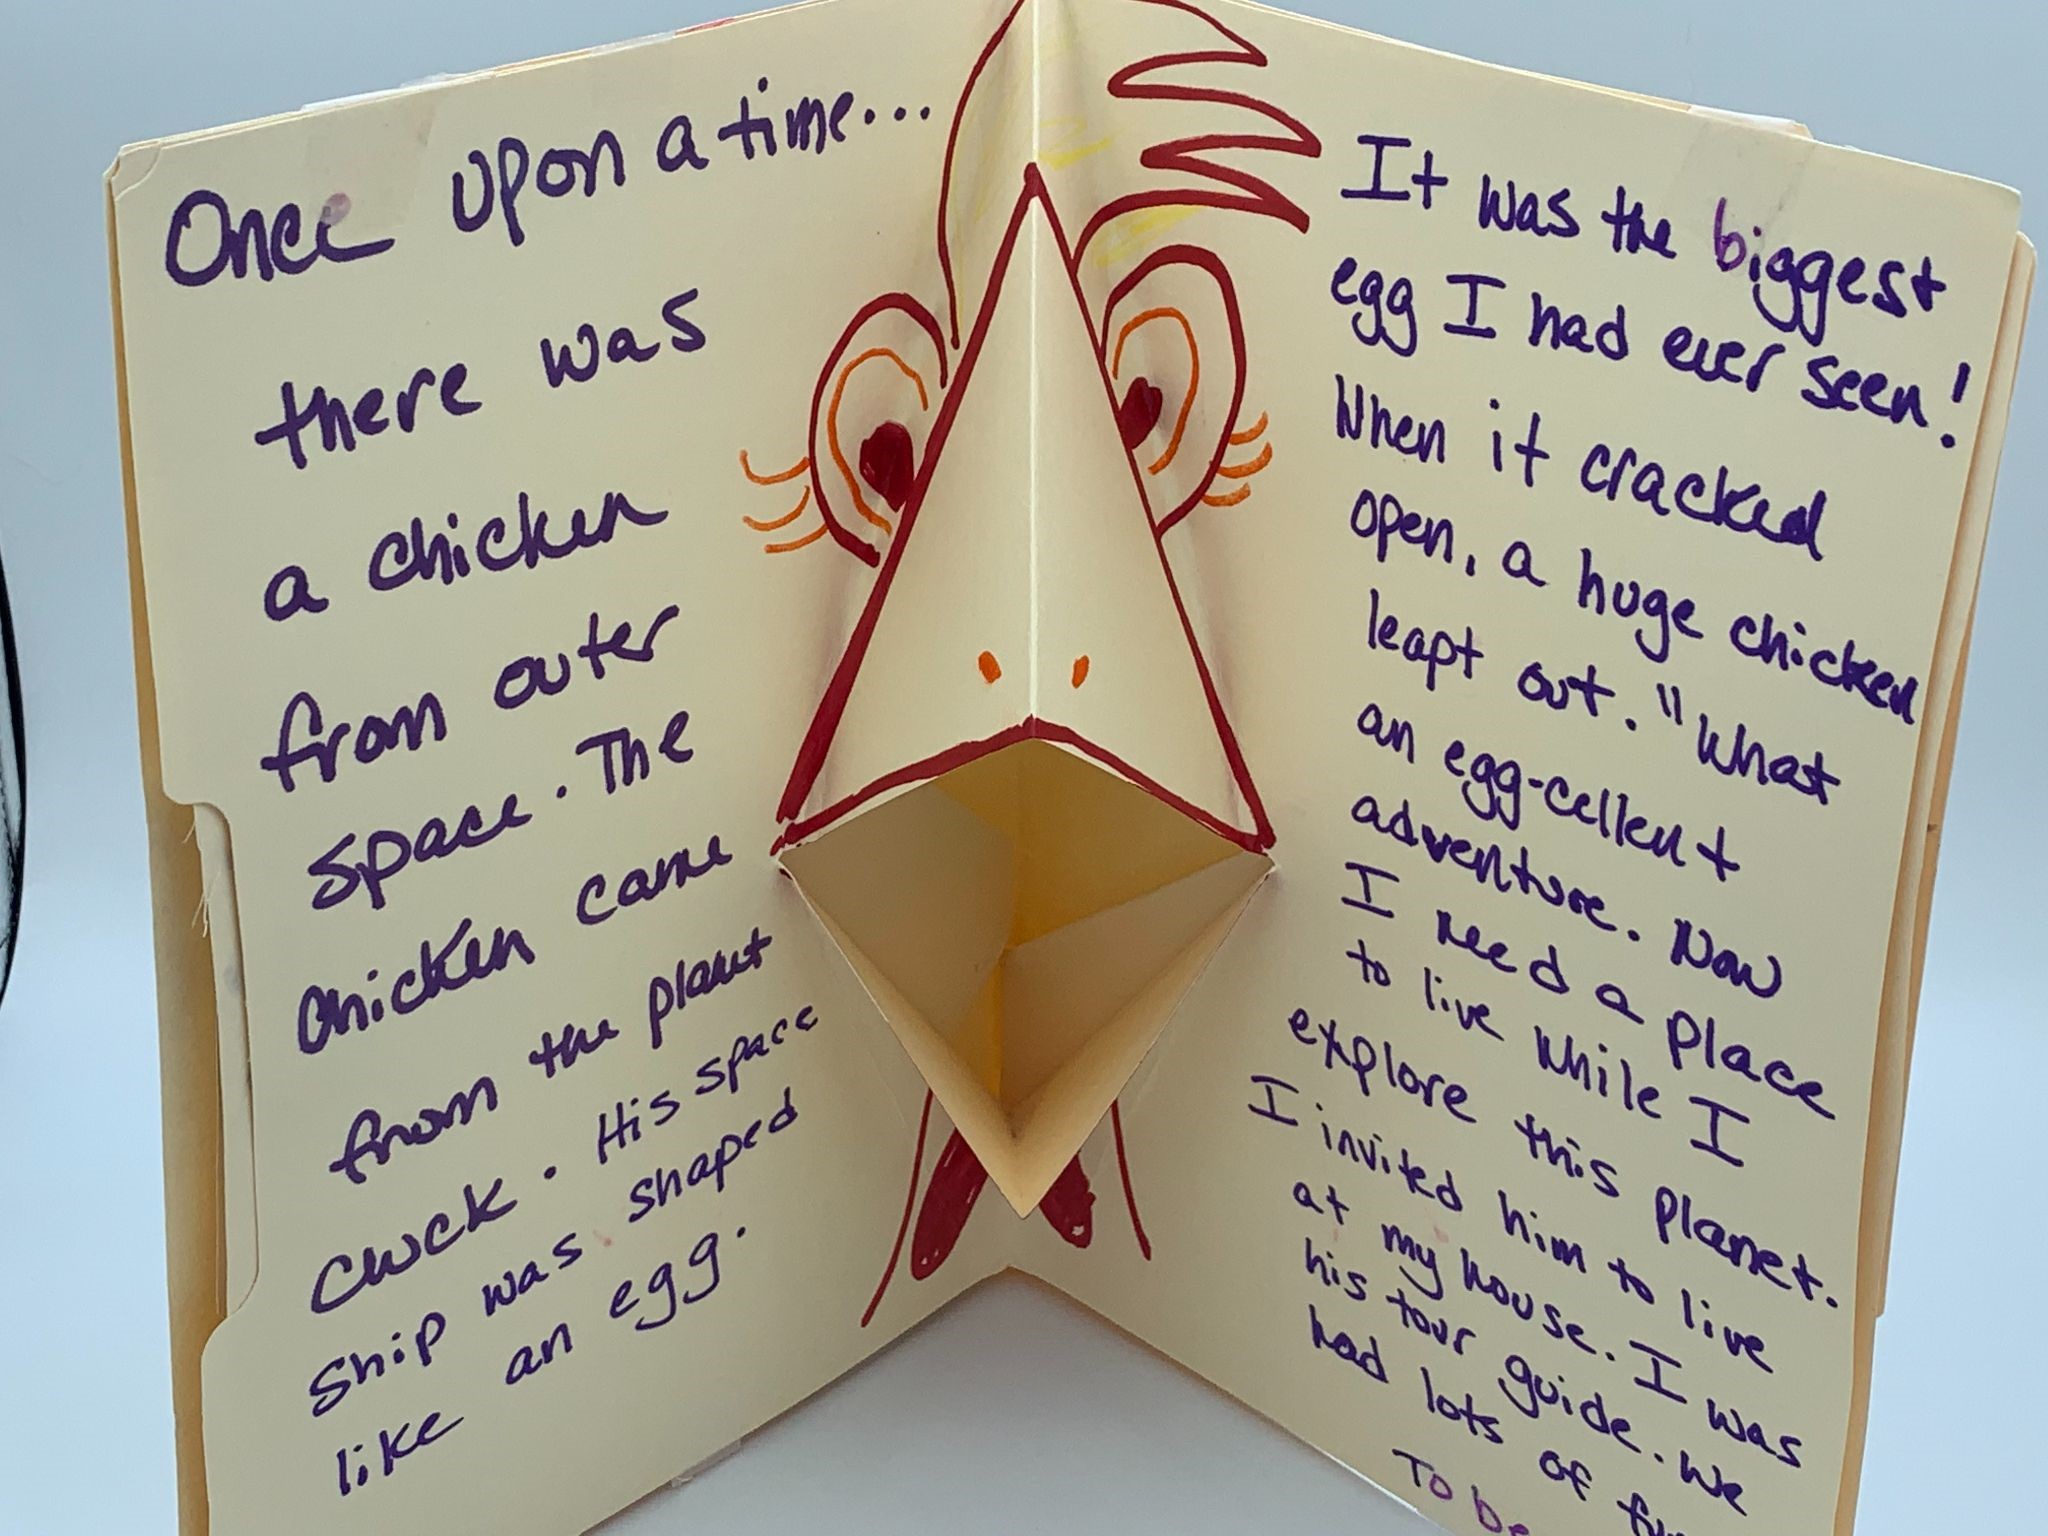 Once upon a time...
there was
a chicken
from outer
space. The
chicken came
from the planet
Cluck. His space
ship was shaped
like an egg.
It was the biggest
egg I had ever seen!
When it cracked
open, a huge chicken
leapt out. "What
an egg-cellent
adventure. Now
I need a place
to live while I
explore this planet.
I invited him to live
at my house. I was
his tour guide. We
had lots of
To be